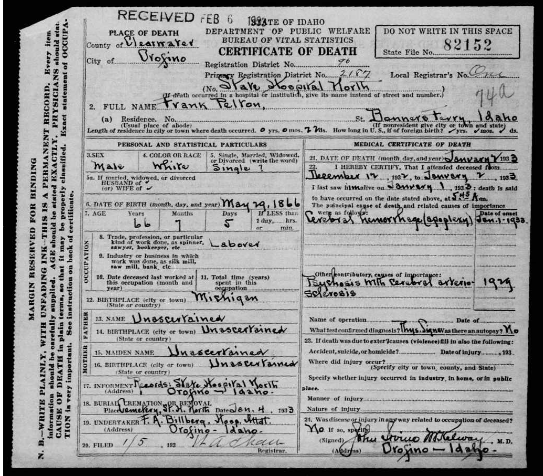 RECEIVED FEB 6 1933
STATE OF IDAHO
DEPARTMENT OF PUBLIC WELFARE
BUREAU OF VITAL STATISTICS
CERTIFICATE OF DEATH
DO NOT WRITE IN THIS SPACE
State File No. 82152
PLACE OF DEATH
County of Clearwater
City of Orofino
Registration District No. 96
Primary Registration District No. 2187 Local Registrar's No. One
(No. State Hospital North
(If death occurred in a hospital or institution, give its name instead of street and number.)
74a
2. FULL NAME Frank Pelton,
(a) Residence. No. St. Bonners Ferry, Idaho
(Usual place of abode) (If nonresident give city or town and state)
Length of residence in city or town where death occurred. 0 yrs. 0 mos. How long in U. S., if of foreign birth? yrs. mos. ds.
PERSONAL AND STATISTICAL PARTICULARS
3. SEX Male
4. COLOR OR RACE White
5. Single, Married, Widowed, or Divorced (write the word) Single ?
5a. If married, widowed, or divorced
HUSBAND of
(or) WIFE of
6. DATE OF BIRTH (month, day, and year) May 29, 1866
7. AGE Years 66 Months 7 Days 5 If LESS than
8. Trade, profession, or particular kind of work done, as spinner, sawyer, bookkeeper, etc. Laborer
9. Industry or business in which work was done, as silk mill, saw mill, bank, etc.
10. Date deceased last worked at this occupation (month and year)
11. Total time (years) spent in this occupation
OCCUPATION
12. BIRTHPLACE (city or town) Michigan
(State or country)
FATHER
13. NAME Unascertained
14. BIRTHPLACE (city or town) Unascertained
(State or country)
MOTHER
15. MAIDEN NAME Unascertained
16. BIRTHPLACE (city or town) Unascertained
(State or country)
17. INFORMANT Records: State Hospital North
(Address) Orofino - Idaho
18. BURIAL, CREMATION OR REMOVAL
Place Cemetery, St. H. North Date Jan. 4, 1933
19. UNDERTAKER F. A. Billberg. Hosp. Attdt.
(Address) Orofino - Idaho.
20. FILED 1/5 193
Registrar.
MEDICAL CERTIFICATE OF DEATH
21. DATE OF DEATH (month, day, and year) January 2 1933
22. I HEREBY CERTIFY, That I attended deceased from
December 12, 1932, to January 2, 1933
I last saw him alive on January 1, 1933; death is said
to have occurred on the date stated above, at 5:45 A.m.
The principal cause of death, and related causes of importance
were as follows:
Cerebral hemorrhage (apoplexy) Jan. 1-1933.
Other contributory causes of importance:
Psychosis with cerebral arterio- 1929
sclerosis
Name of operation
What test confirmed diagnosis? Phys. Signs Was there an autopsy? No
23. If death was due to external causes (violence) fill in also the following:
Accident, suicide, or homicide? Date of injury 193
Where did injury occur?
(Specify city or town, county, and State)
Specify whether injury occurred in industry, in home, or in public place.
Manner of injury
Nature of injury
24. Was disease or injury in any way related to occupation of deceased?
No If so, specify
(Signed)
(Address) Orofino - Idaho.
MARGIN RESERVED FOR BINDING
N. B.—WRITE PLAINLY, WITH UNFADING INK—THIS IS A PERMANENT RECORD. Every item of information should be carefully supplied. AGE should be stated EXACTLY. PHYSICIANS should state CAUSE OF DEATH in plain terms, so that it may be properly classified. Exact statement of OCCUPATION is very important. See instructions on back of certificate.